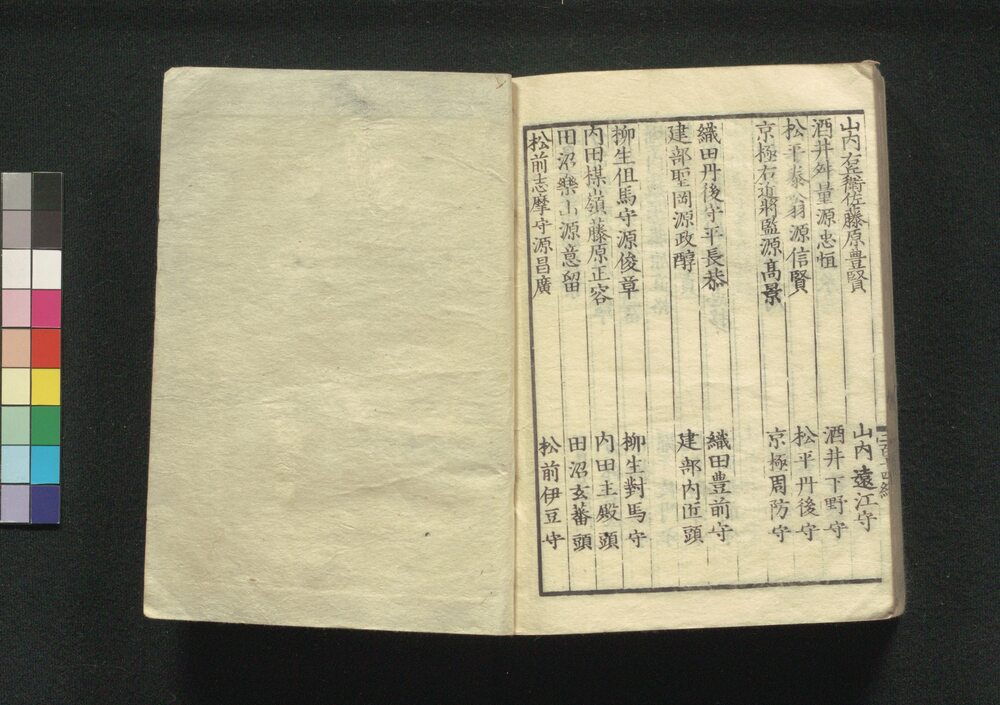 山内右兵衛佐藤原豊賢 山内遠江守
酒井舛量源忠恒 酒井下野守
松平泰翁源信賢 松平丹後守
京極右近將監源高景 京極周防守
織田丹後守平長恭 織田豊前守
建部聖岡源政醇 建部内匠頭
柳生但馬守源俊章 柳生對馬守
内田楳嶺藤原正容 内田主殿頭
田沼樂山源意留 田沼玄蕃頭
松前志摩守源昌廣 松前伊豆守